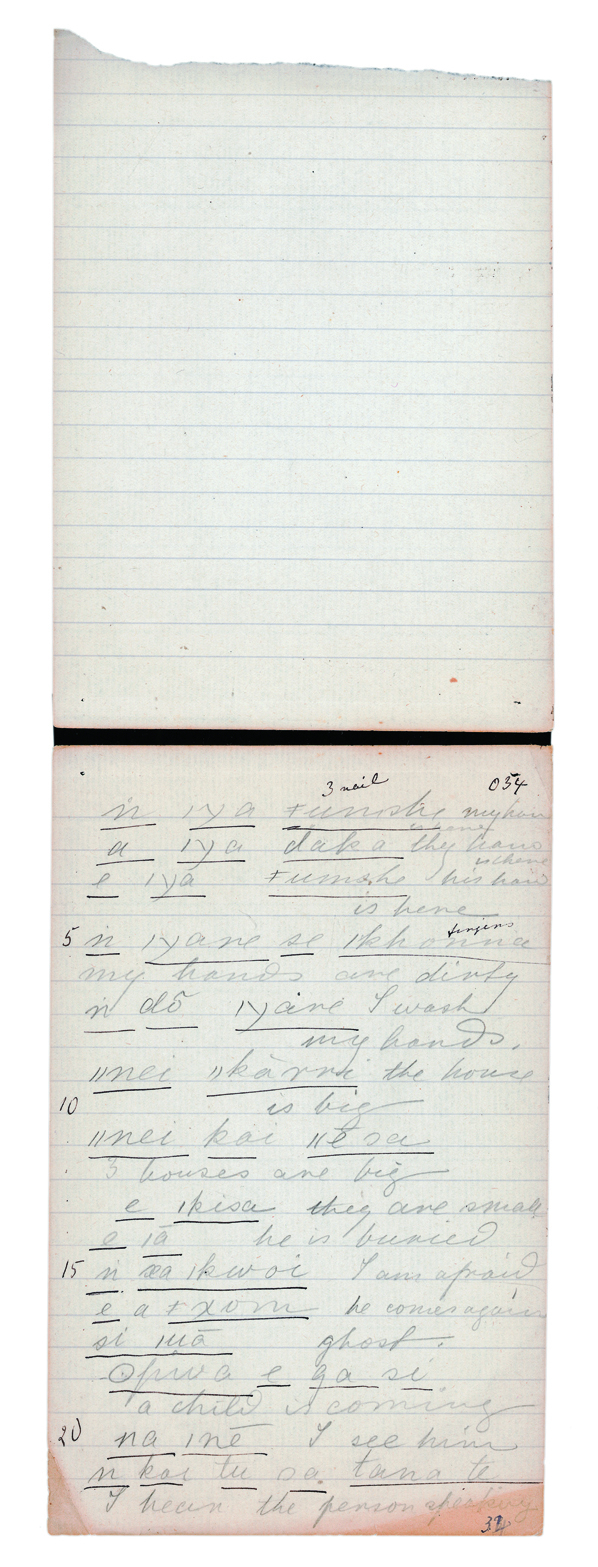 3 nail 034
ṅ ꞁɣa ǂumshe my hair
is here
a ꞁɣa daka thy hair
is here
e ꞁɣa ǂumshe his hair
is here
fingers
5 n ꞁɣane se ꞁkhonna
my hands are dirty
n dō ꞁɣane I wash
my hands.
ǁnei ǁkārri the house
10 is big
ǁnei kai ǁēsa
3 houses are big
e ꞁkisa they are small
e ꞁā he is buried
15 n xa ꞁkwoi I am afraid
e a ǂxom he comes again
si ꞁuā ghost.
Opwa e ga si
a child is coming
20 na ꞁnē I see him
n kai tu sa tana te
I hear the person speaking